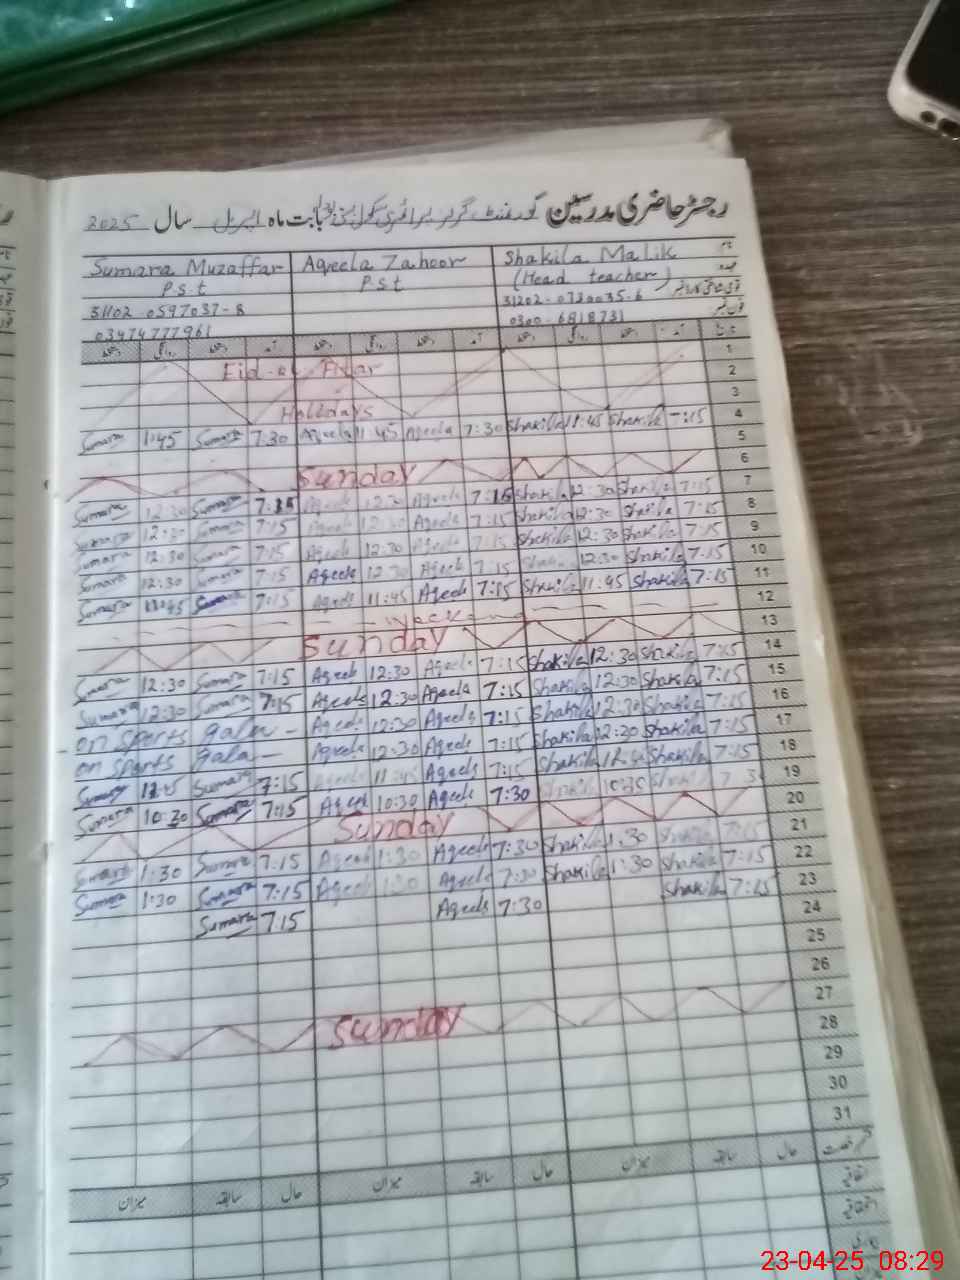 رجسٹر حاضری مدرسین گورنمنٹ گرلز پرائمری سکول بابت ماہ اپریل سال 2025
Sumara Muzaffar Aqeela Zahoor Shakila Malik
P.s.t P.s.t (Head teacher)
31102-0597037-8 31202-0720035-6
03474777961 0300-6818731
1
Eid-ul Fitar 2
3
Holidays 4
Sumara 1:45 Sumara 7:30 Aqeela 11:45 Aqeela 7:30 Shakila 11:45 Shakila 7:15 5
Sunday 6
Sumara 12:30 Sumara 7:15 Aqeela 12:30 Aqeela 7:15 Shakila 12:30 Shakila 7:15 7
Sumara 12:30 Sumara 7:15 Aqeela 12:30 Aqeela 7:15 Shakila 12:30 Shakila 7:15 8
Sumara 12:30 Sumara 7:15 Aqeela 12:30 Aqeela 7:15 Shakila 12:30 Shakila 7:15 9
Sumara 12:30 Sumara 7:15 Aqeela 12:30 Aqeela 7:15 Shakila 12:30 Shakila 7:15 10
Sumara 11:45 Sumara 7:15 Aqeela 11:45 Aqeela 7:15 Shakila 11:45 Shakila 7:15 11
12
Sunday 13
Sumara 12:30 Sumara 7:15 Aqeela 12:30 Aqeela 7:15 Shakila 12:30 Shakila 7:15 14
Sumara 12:30 Sumara 7:15 Aqeela 12:30 Aqeela 7:15 Shakila 12:30 Shakila 7:15 15
on sports gala - Aqeela 12:30 Aqeela 7:15 Shakila 12:30 Shakila 7:15 16
on sports gala - Aqeela 12:30 Aqeela 7:15 Shakila 12:20 Shakila 7:15 17
Sumara Sumara 7:15 Aqeela 11:45 Aqeela 7:15 Shakila Shakila 7:15 18
Sumara 10:30 Sumara 7:15 Aqeela 10:30 Aqeela 7:30 Shakila 10:35 Shakila 19
Sunday 20
Sumara 1:30 Sumara 7:15 Aqeela 1:30 Aqeela 7:30 Shakila 1:30 Shakila 7:15 21
Sumara 1:30 Sumara 7:15 Aqeela 1:30 Aqeela 7:30 Shakila 1:30 Shakila 7:15 22
Sumara 7:15 Aqeela 7:30 Shakila 7:15 23
24
25
26
Sunday 27
28
29
30
31
میزان سابقہ حال میزان سابقہ حال میزان سابقہ حال
23-04-25 08:29